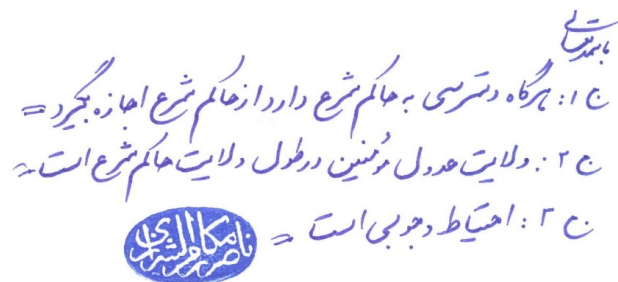 باسمه تعالی
ج ۱: هرگاه دسترسی به حاکم شرع دارد از حاکم شرع اجازه بگیرد =
ج ۲: ولایت عدول مؤمنین در طول ولایت حاکم شرع است =
ج ۳: احتیاط وجوبی است =
ناصر مکارم الشیرازی